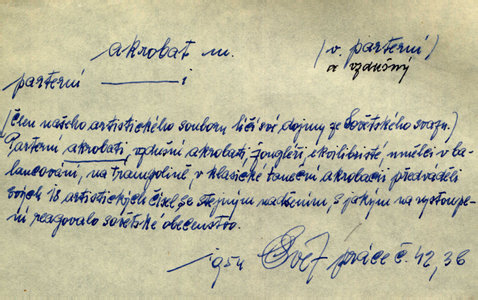 akrobat m. (v. parterní)
a vzdušný
parterní ——— i
(Člen našeho artistického souboru líčí své dojmy ze Sovětského svazu.)
Parterní akrobati, vzdušní akrobati, žongléři, ekvilibristé, umělci v ba-
lancování, na trampolině, v klasické taneční akrobacii předváděli
svých 18 artistických čísel se stejným nadšením, s jakým na vystoupe-
ní reagovalo sovětské obecenstvo.
Svět práce č. 42, 36